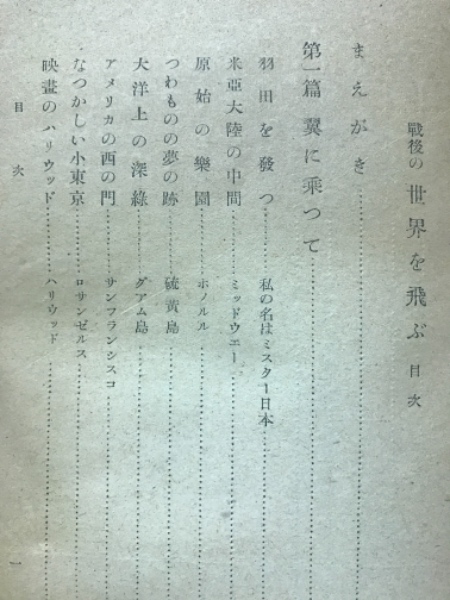 戰後の世界を飛ぶ 目次
まえがき
第一篇 翼に乘つて
羽田を發つ 私の名はミスター日本
米亞大陸の中間 ミッドウエー
原始の樂園 ホノルル
つわものの夢の跡 硫黄島
大洋上の深綠 グアム島
アメリカの西の門 サンフランシスコ
なつかしい小東京 ロサンゼルス
映畫のハリウッド ハリウッド
目次
一